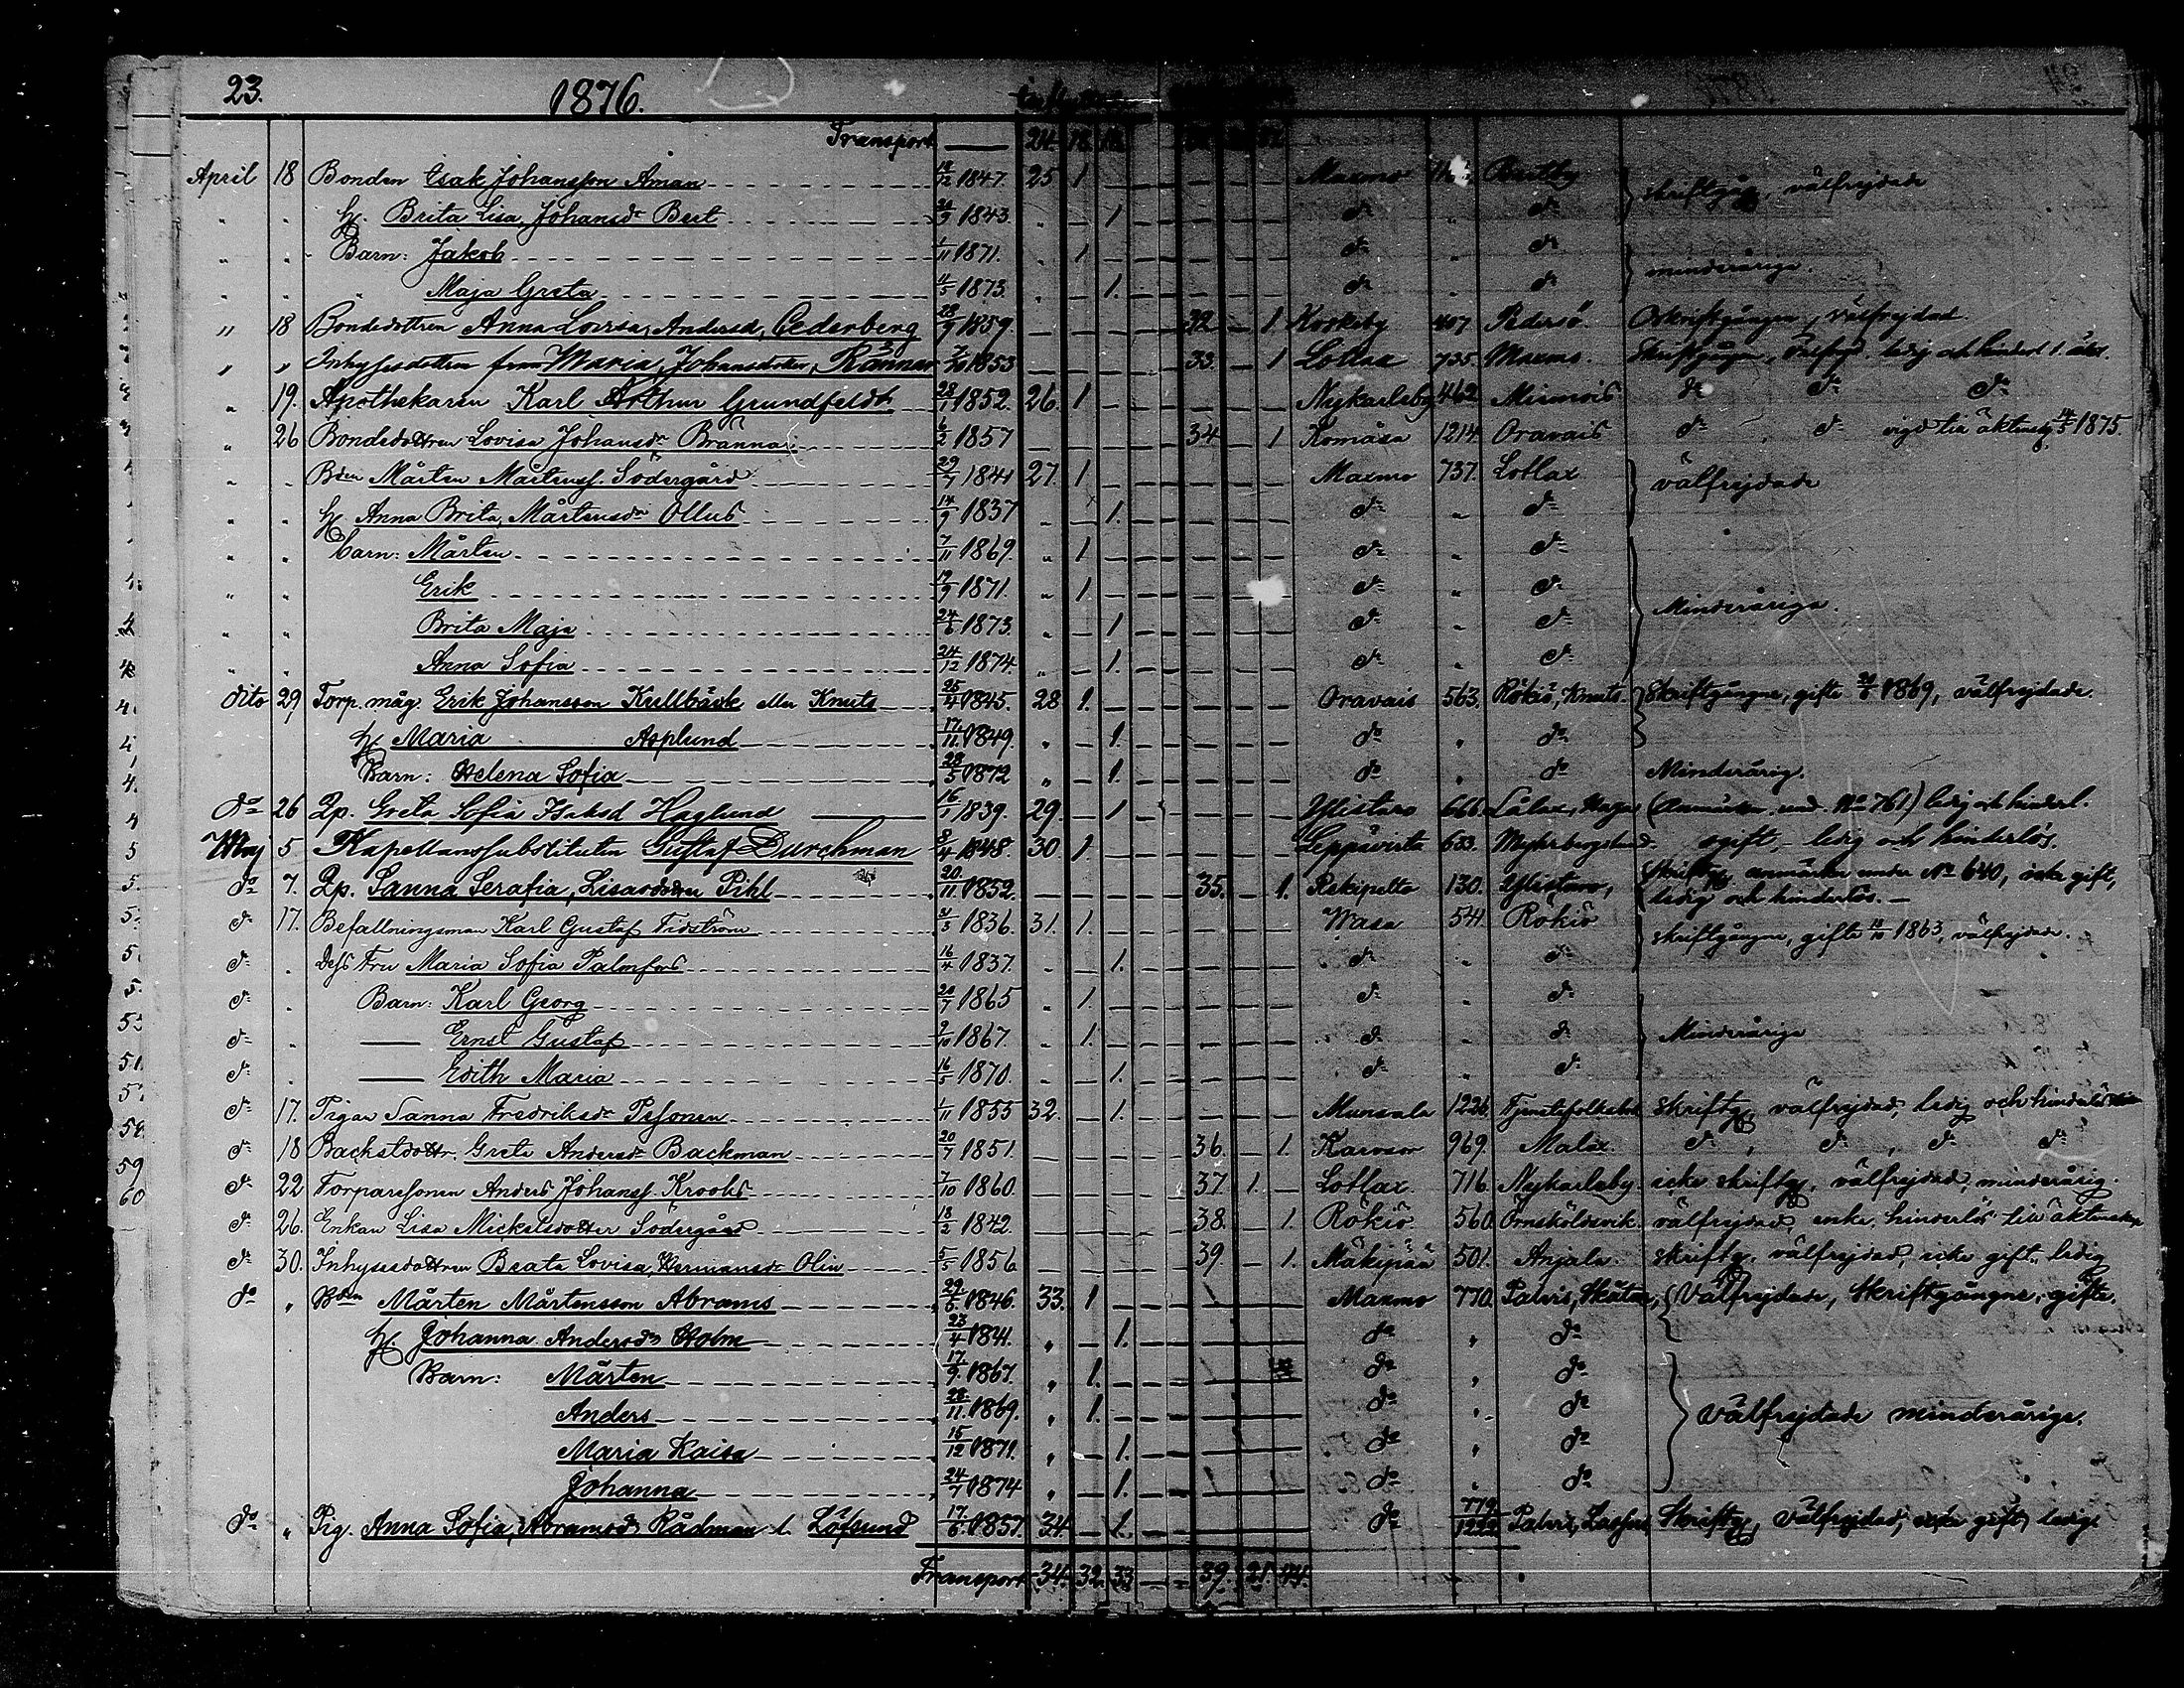 23. 1876.
Transport — 24. 18. 18.
April 18 Bonden Isak Johansson Åman 18/12 1847. 25 1 Maxmo skriftgångne, välfrejdade
" " H. Brita Lisa, Johansdr Bert 1843. " 1. dr " dr
" " Barn: Jakob 1/11 1871. " 1 dr " dr minderåriga.
" " Maja Greta 1873. " 1. dr " dr
" 18 Bondedottren Anna Lovisa, Andersd, Cederberg 28/9 1859. 32 1. Koskeby 407 Pedersö. Oskriftgången, välfrejdad.
" " Inhysesdottren Maria, Johansdotter, Rännar 1853 33. 1 Lotlax 735. Maxmo.
" 19. Apothekaren Karl Arthur Grundfeldt 28/1 1852. 26. 1 Nykarleby 462. dr dr dr
" 26 Bondedottren Lovisa Johansdr Bränna 6/2 1857 34 1 Komåsa 1214. Oravais dr dr vigd till äktensk. 1875.
" " Bden Mårten Mårtenss. Södergård 29/7 1844 27. 1 Maxmo 737. Lotlax välfrejdade
" " H. Anna Brita, Mårtensdr Ollus 14/9 1837 " 1. dr " dr
" " barn: Mårten 7/11 1869. " 1 dr " dr
" " Erik 19/9 1871. " 1 dr " dr Minderåriga.
" " Brita Maja 24/6 1873. " 1 dr " dr
" " Anna Sofia 24/12 1874. " 1. dr " dr
dito 29 Torp. måg. Erik Johansson Kullbäck eller Knuts 25/4 1845. 28 1. Oravais 563. Rökiö, Knuts. Skriftgångne, gifte 1869, välfrejdade.
H. Maria Asplund 17/11 1849. " 1. do " do
Barn: Helena Sofia 28/5 1872 " 1. do " do Minderårig.
do 26 Pp. Greta Sofia Isaksd Haglund 16/1 1839. 29. 1 Ylistaro 666. (Anmärkn. und. No 761) ledig och hinderl.
Maj 5 Kapellanssubstituten Gustaf Durchman 8/4 1848. 30. 1. Leppävirta 633. ogift – ledig och hinderlös.
do 7. Pp. Sanna Serafia, Lisasdotter Pihl 20/11 1852. 35. 1. Rekipelto 130. Ylistaro, Skriftg, anmärkn under No 640, icke gift,
ledig och hinderlös. —
dr 17. Befallningsman Karl Gustaf Tidström 1836. 31. 1. Wasa 541 Rökiö skriftgångne, gifte 1863, välfrejdade.
dr " Dess Fru Maria Sofia Palmfors 16/4 1837. " 1. dr " dr
dr " Barn: Karl Georg 20/7 1865 " 1. dr " dr
dr " — Ernst Gustaf 2/10 1867. " 1. dr " dr Minderåriga
dr " — Edith Maria 16/5 1870. " 1. dr " dr
dr 17. Pigan Sanna Fredriksdr Pesonen 1/11 1855 32. 1. Munsala 1226. skriftg, välfrejdad, ledig och hinderlös
dr 18 Backstdottr. Greta Andersdr Backman 20/7 1851. 36. 1. Karvsor 969. Malax. dr, dr, dr dr
dr 22 Torparesonen Anders Johanss. Krooks 7/10 1860. 37. 1. Lotlax. 716. Nykarleby. icke skriftg, välfrejdad, minderårig.
dr 26. Enkan Lisa Mickelsdotter Södergård 18/2 1842. 38. 1. Rökiö 560. Örnsköldsvik. välfrejdad, enka, hinderlös till äktenskap
dr 30. Inhysesdottren Beata Lovisa, Hermansdr Olin 5/5 1856 39. 1. Mäkipää 501. Anjala. skriftg, välfrejdad, icke gift, ledig
do " Bden Mårten Mårtensson Abrams 1846. 33. 1 Maxmo 770. Palvis, Skåtar, Välfrejdade, Skriftgångne, gifta.
H. Johanna Andersdr Holm 23/4 1841. " 1. do " do
Barn: Mårten 17/9 1867. " 1. do " do
Anders 28/11 1869. " 1. do " do Välfrejdade minderåriga.
Maria Kaisa 15/12 1871. " 1. do " do
Johanna 24/7 1874 " 1. do " do
do " Pig. Anna Sofia, Abramsdr Rådman l. Löfsund 17/6 1857. 34 1. do 779 Skriftg, Välfrejdad, icke gift, ledig
Transport 34. 32. 33 39. 21.